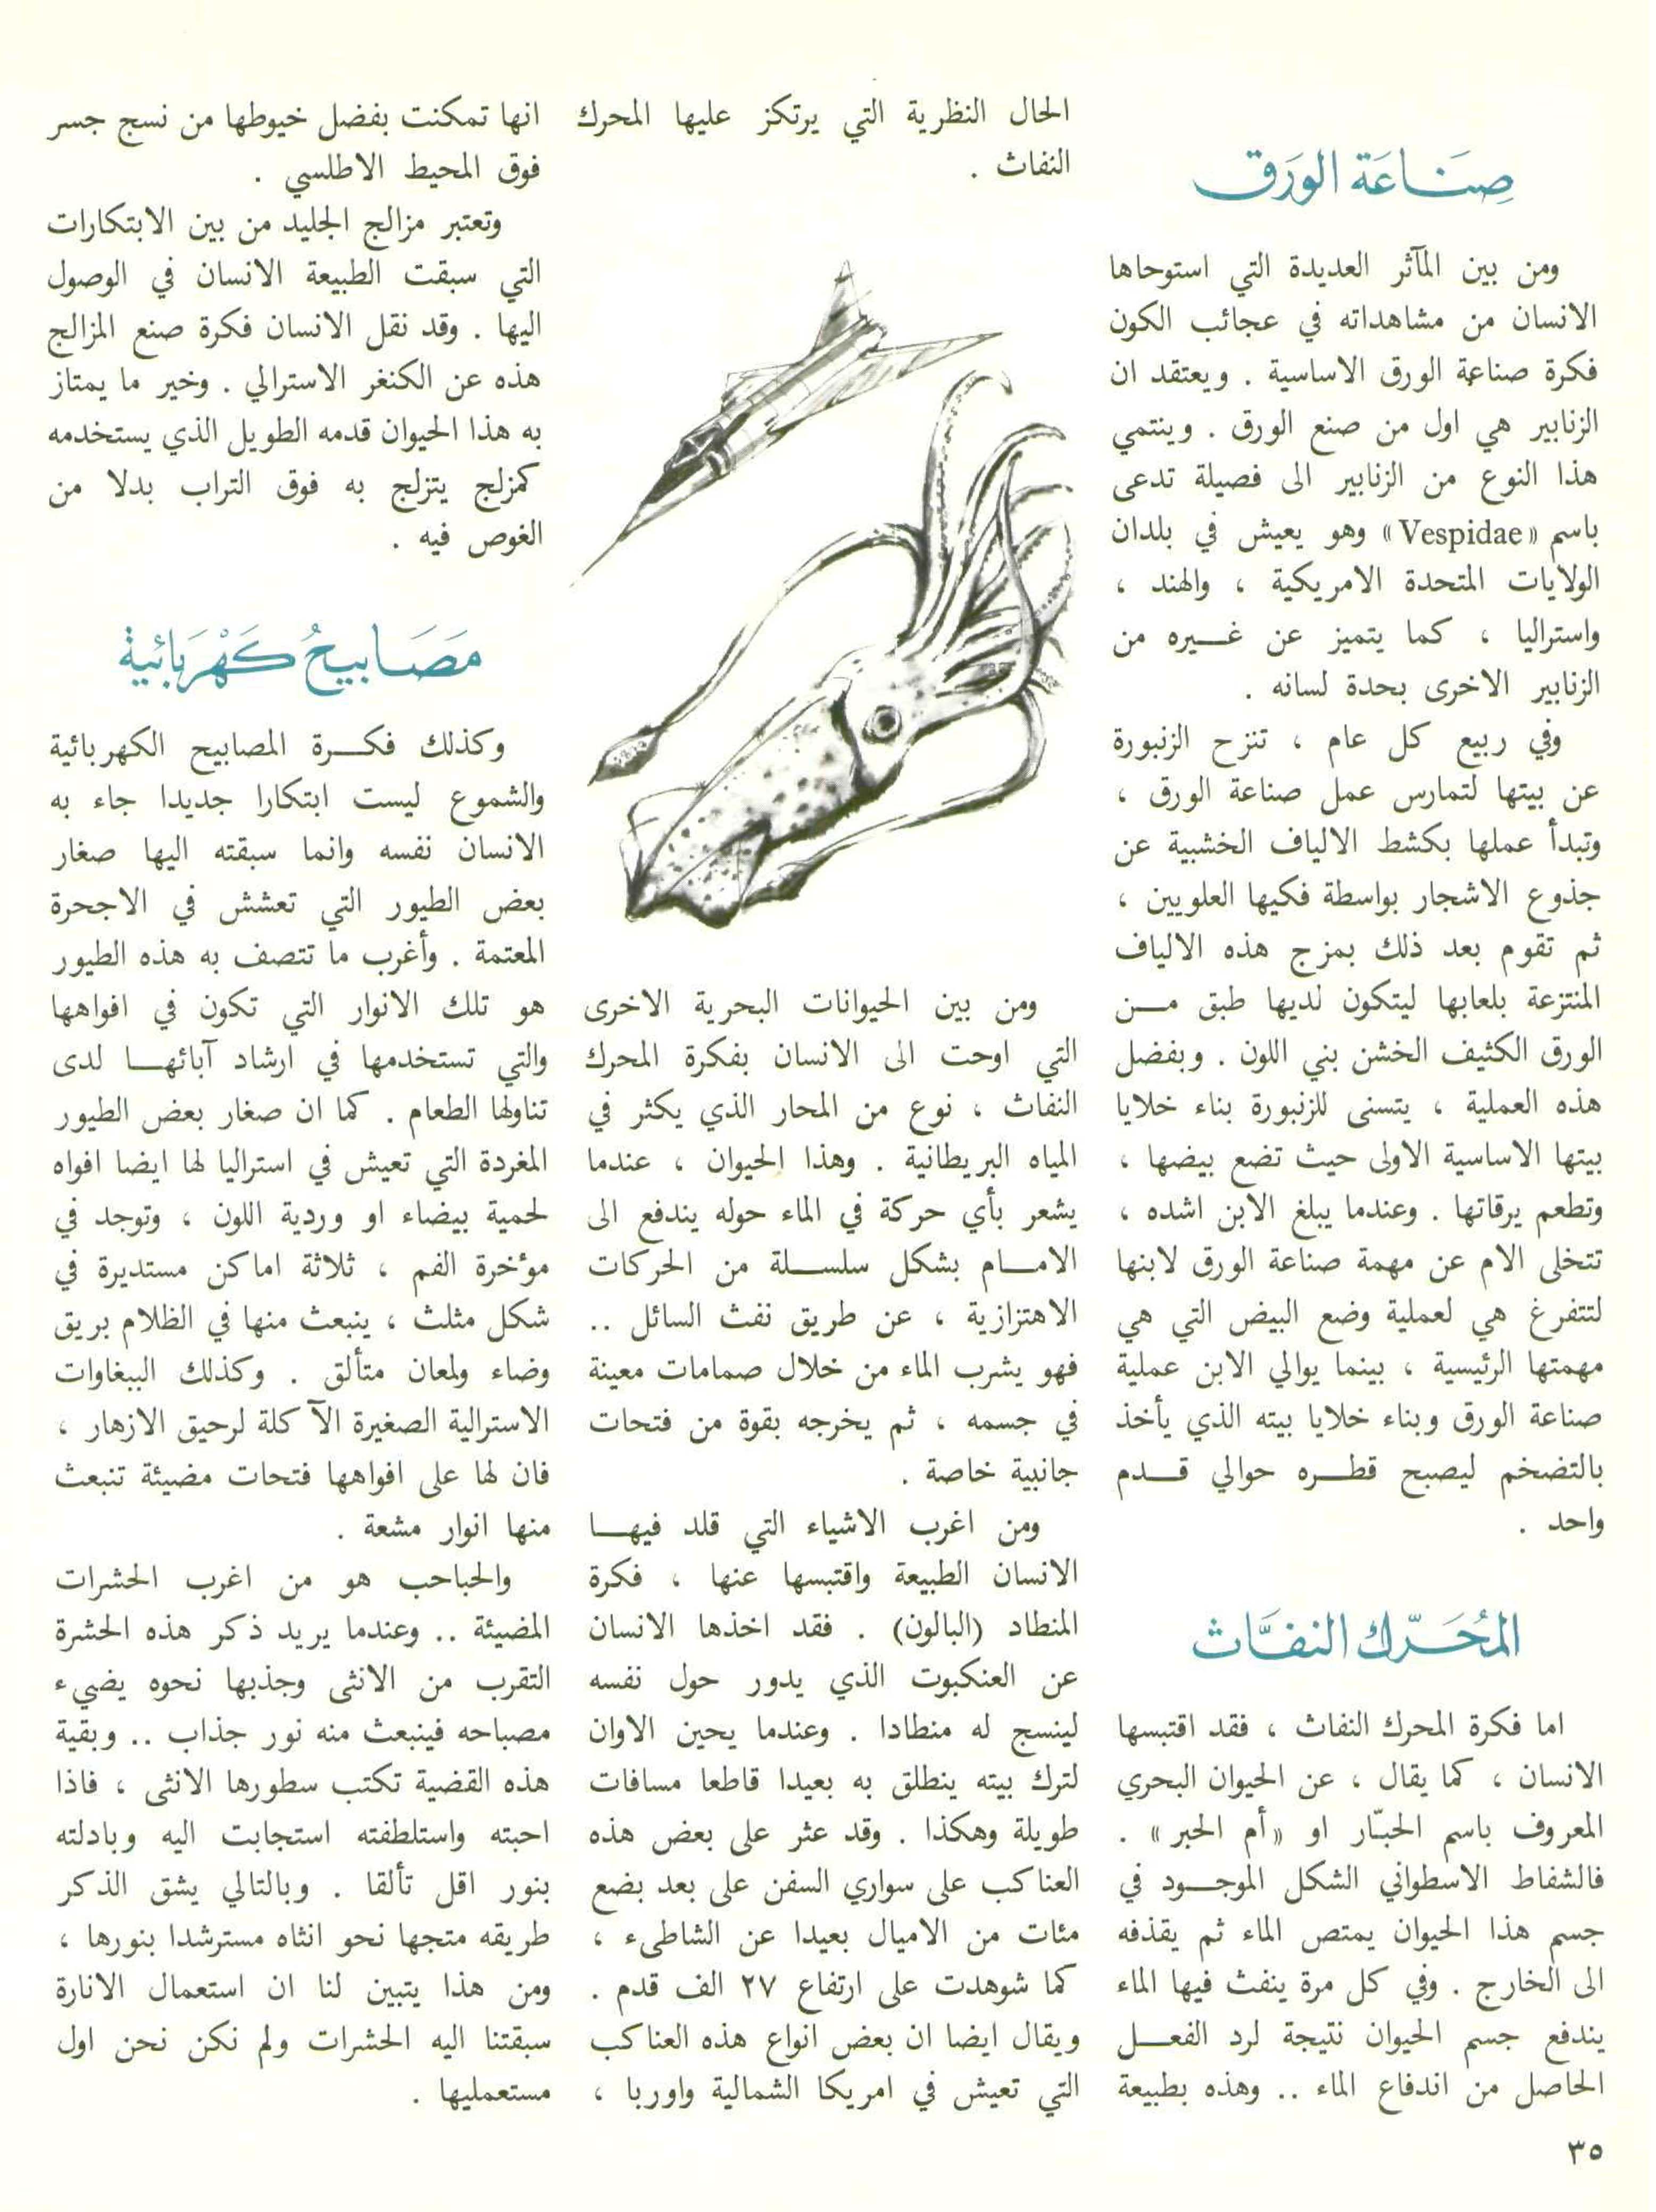 صِنَاعَة الوَرَق
ومن بين المآثر العديدة التي استوحاها
الانسان من مشاهداته في عجائب الكون
فكرة صناعة الورق الاساسية . ويعتقد ان
الزنابير هي اول من صنع الورق . وينتمي
هذا النوع من الزنابير الى فصيلة تدعى
باسم «Vespidae» وهو يعيش في بلدان
الولايات المتحدة الامريكية ، والهند ،
واستراليا ، كما يتميز عن غـــيره من
الزنابير الاخرى بحدة لسانه .
وفي ربيع كل عام ، تنزح الزنبورة
عن بيتها لتمارس عمل صناعة الورق ،
وتبدأ عملها بكشط الالياف الخشبية عن
جذوع الاشجار بواسطة فكيها العلويين ،
ثم تقوم بعد ذلك بمزج هذه الالياف
المنتزعة بلعابها ليتكون لديها طبق مـــن
الورق الكثيف الخشن بني اللون . وبفضل
هذه العملية ، يتسنى للزنبورة بناء خلايا
بيتها الاساسية الاولى حيث تضع بيضها ،
وتطعم يرقاتها . وعندما يبلغ الابن اشده ،
تتخلى الام عن مهمة صناعة الورق لابنها
لتتفرغ هي لعملية وضع البيض التي هي
مهمتها الرئيسية ، بينما يوالي الابن عملية
صناعة الورق وبناء خلايا بيته الذي يأخذ
بالتضخم ليصبح قطـــره حوالي قـــدم
واحد .
المُحَرّك النفَّاث
اما فكرة المحرك النفاث ، فقد اقتبسها
الانسان ، كما يقال ، عن الحيوان البحري
المعروف باسم الحبّار او «أم الحبر» .
فالشفاط الاسطواني الشكل الموجـــود في
جسم هذا الحيوان يمتص الماء ثم يقذفه
الى الخارج . وفي كل مرة ينفث فيها الماء
يندفع جسم الحيوان نتيجة لرد الفعـــل
الحاصل من اندفاع الماء .. وهذه بطبيعة
الحال النظرية التي يرتكز عليها المحرك
النفاث .
ومن بين الحيوانات البحرية الاخرى
التي اوحت الى الانسان بفكرة المحرك
النفاث ، نوع من المحار الذي يكثر في
المياه البريطانية . وهذا الحيوان ، عندما
يشعر بأي حركة في الماء حوله يندفع الى
الامـــام بشكل سلســـلة من الحركات
الاهتزازية ، عن طريق نفث السائل ..
فهو يشرب الماء من خلال صمامات معينة
في جسمه ، ثم يخرجه بقوة من فتحات
جانبية خاصة .
ومن اغرب الاشياء التي قلد فيهـــا
الانسان الطبيعة واقتبسها عنها ، فكرة
المنطاد (البالون) . فقد اخذها الانسان
عن العنكبوت الذي يدور حول نفسه
لينسج له منطادا . وعندما يحين الاوان
لترك بيته ينطلق به بعيدا قاطعا مسافات
طويلة وهكذا . وقد عثر على بعض هذه
العناكب على سواري السفن على بعد بضع
مئات من الاميال بعيدا عن الشاطىء ،
كما شوهدت على ارتفاع ٢٧ الف قدم .
ويقال ايضا ان بعض انواع هذه العناكب
التي تعيش في امريكا الشمالية واوربا ،
انها تمكنت بفضل خيوطها من نسج جسر
فوق المحيط الاطلسي .
وتعتبر مزالج الجليد من بين الابتكارات
التي سبقت الطبيعة الانسان في الوصول
اليها . وقد نقل الانسان فكرة صنع المزالج
هذه عن الكنغر الاسترالي . وخير ما يمتاز
به هذا الحيوان قدمه الطويل الذي يستخدمه
كمزلج يتزلج به فوق التراب بدلا من
الغوص فيه .
مَصَابيحُ كَهْرَبائية
وكذلك فكـــرة المصابيح الكهربائية
والشموع ليست ابتكارا جديدا جاء به
الانسان نفسه وانما سبقته اليها صغار
بعض الطيور التي تعشش في الاجحرة
المعتمة . وأغرب ما تتصف به هذه الطيور
هو تلك الانوار التي تكون في افواهها
والتي تستخدمها في ارشاد آبائهـــا لدى
تناولها الطعام . كما ان صغار بعض الطيور
المغردة التي تعيش في استراليا لها ايضا افواه
لحمية بيضاء او وردية اللون ، وتوجد في
مؤخرة الفم ، ثلاثة اماكن مستديرة في
شكل مثلث ، ينبعث منها في الظلام بريق
وضاء ولمعان متألق . وكذلك الببغاوات
الاسترالية الصغيرة الآكلة لرحيق الازهار ،
فان لها على افواهها فتحات مضيئة تنبعث
منها انوار مشعة .
والحباحب هو من اغرب الحشرات
المضيئة .. وعندما يريد ذكر هذه الحشرة
التقرب من الانثى وجذبها نحوه يضيء
مصباحه فينبعث منه نور جذاب .. وبقية
هذه القضية تكتب سطورها الانثى ، فاذا
احبته واستلطفته استجابت اليه وبادلته
بنور اقل تألقا . وبالتالي يشق الذكر
طريقه متجها نحو انثاه مسترشدا بنورها ،
ومن هذا يتبين لنا ان استعمال الانارة
سبقتنا اليه الحشرات ولم نكن نحن اول
مستعمليها .
٣٥